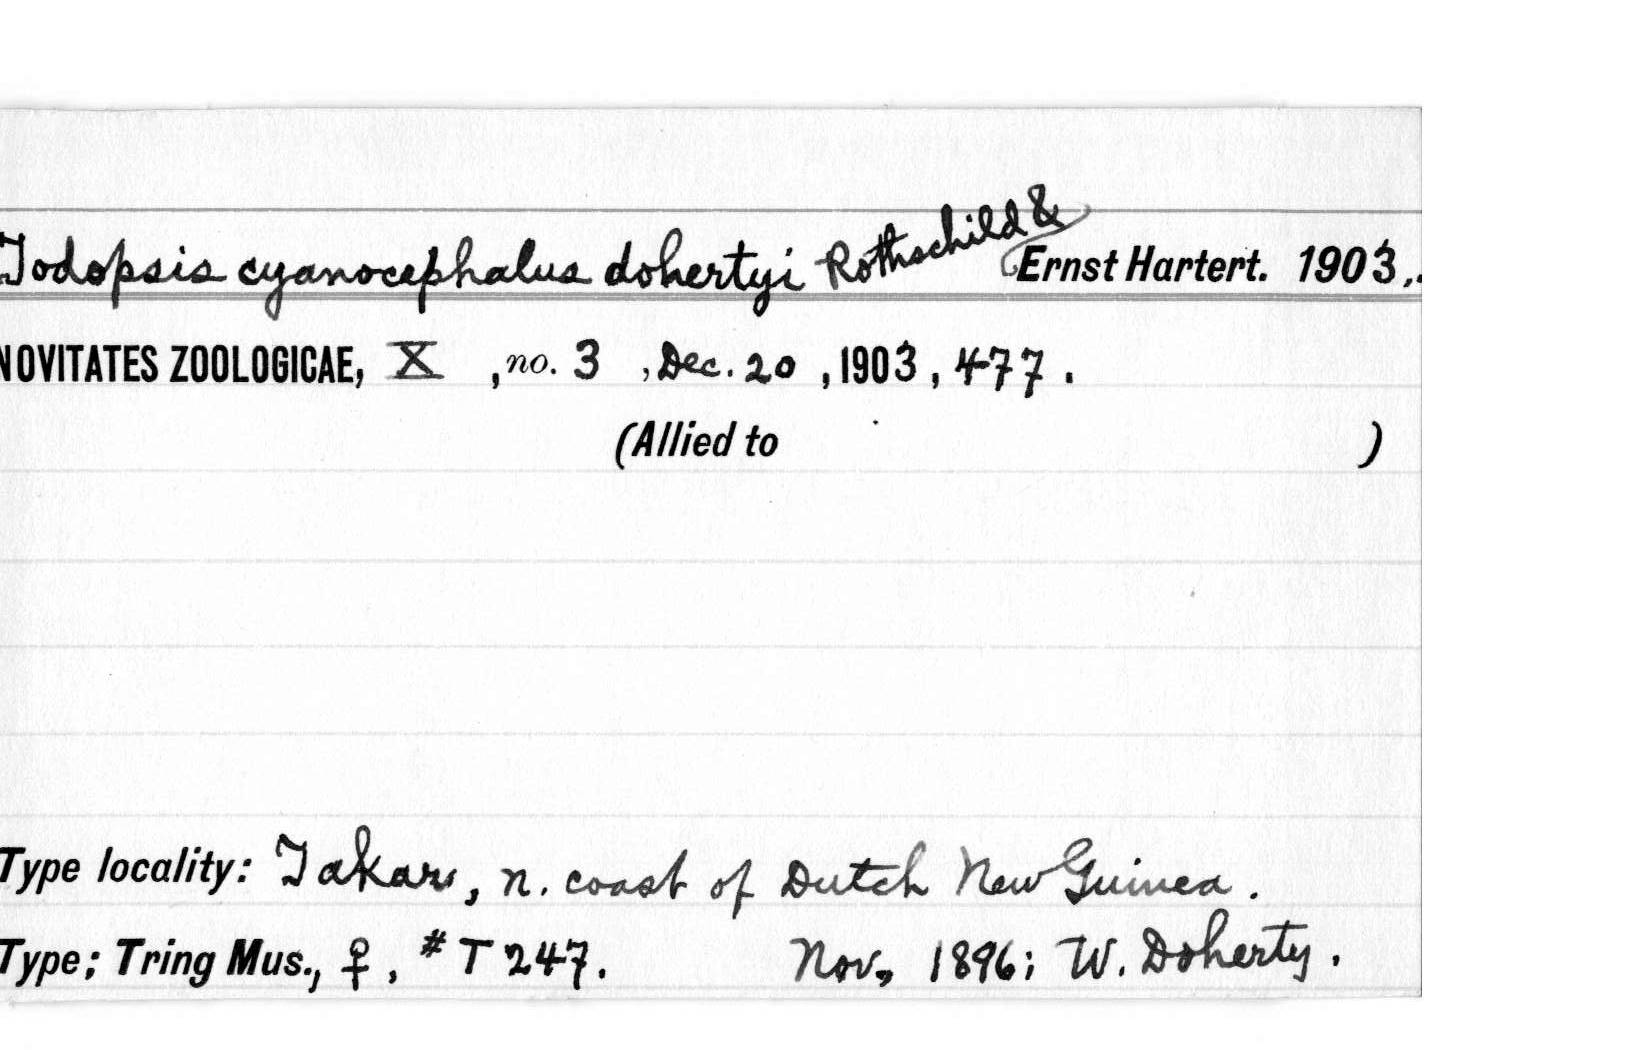 Todopsis cyanocephalus dohertyi Rothschild & Ernst Hartert. 1903,.
NOVITATES ZOOLOGICAE, X , no. 3 , Dec. 20 , 1903 , 477 .
(Allied to )
Type locality: Takar, n. coast of Dutch New Guinea .
Type; Tring Mus., ♀ , # T 247. Nov, 1896; W. Doherty .